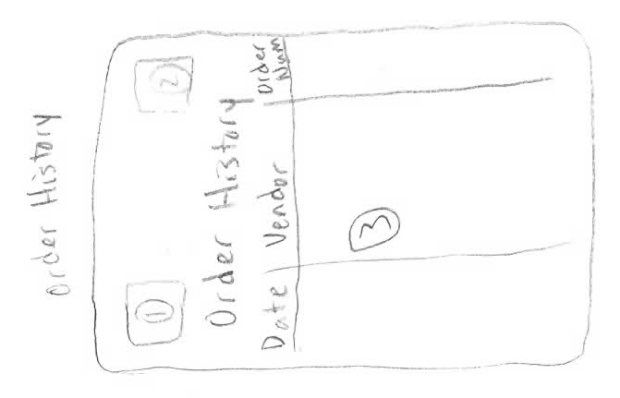 Order History
1 2
Order History
Date Vendor Order Num
3